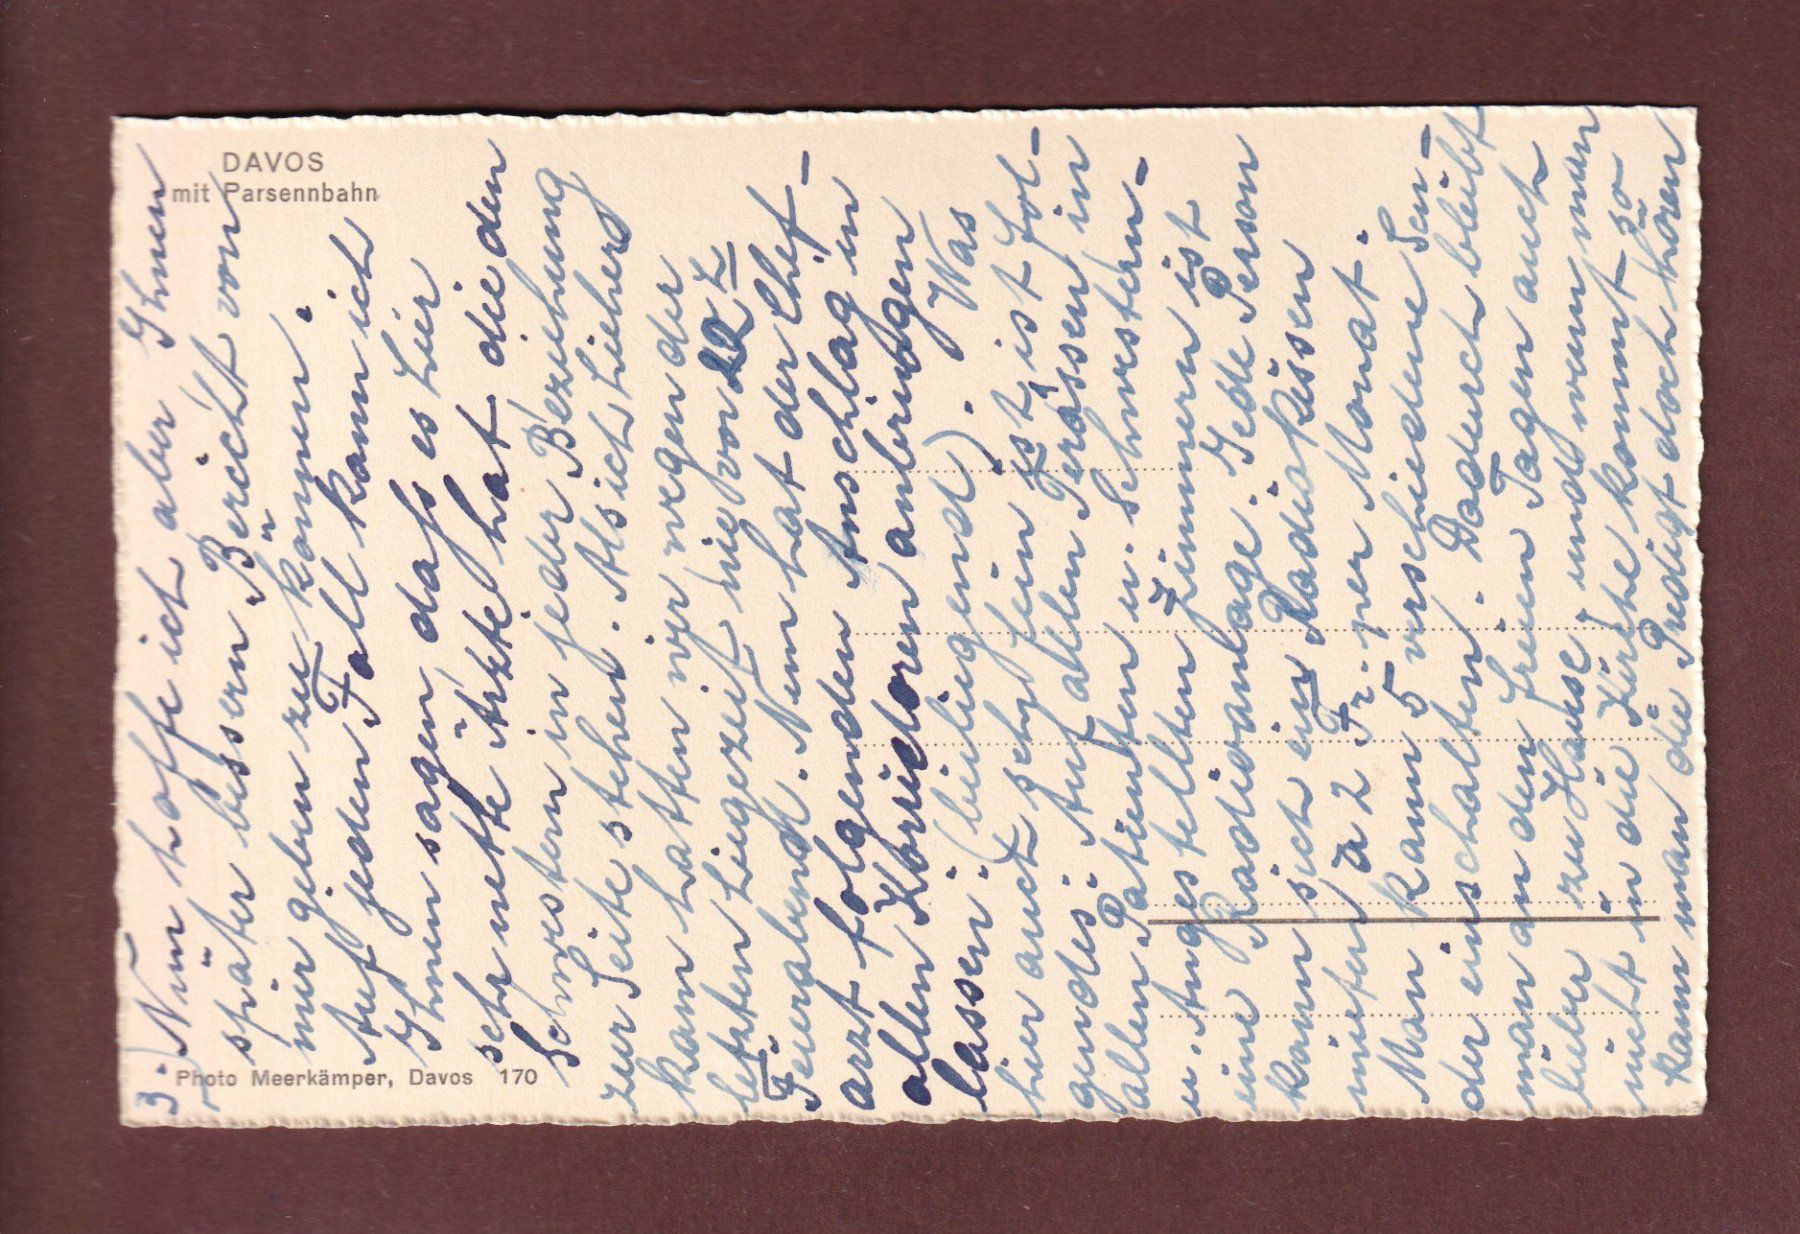 DAVOS
mit Parsennbahn
Photo Meerkämper, Davos 170
3.) Nun hoffe ich aber Ihnen
später bessern Bericht von
mir geben zu können.
Auf jeden Fall kann ich
Ihnen sagen, dass es hier
sehr nette Ärzte hat die den
Schwestern in jeder Beziehung
zur Seite stehen. Als ich hieher
kam hatten wir wegen der
letzten Liegezeit nie vor 22 h
Feierabend. Nun hat der Chef-
arzt folgenden Anschlag in
allen Korridoren anbringen
lassen. (beiliegend). Was
hier auch sehr fein ist, ist fol-
gendes: Auf allen Terassen in
allen Patienten u. Schwestern-
u. Angestellten Zimmern ist
eine Radioanlage. Jede Person
kann sich ein Radiokissen
mieten à 2 Fr. per Monat.
Man kann 5 verschiedene Sen-
der einschalten. Dadurch bleibt
man an den freien Tagen auch
lieber zu Hause, und wenn man
nicht in die Kirche kommt so
kann man die Predigt doch hören